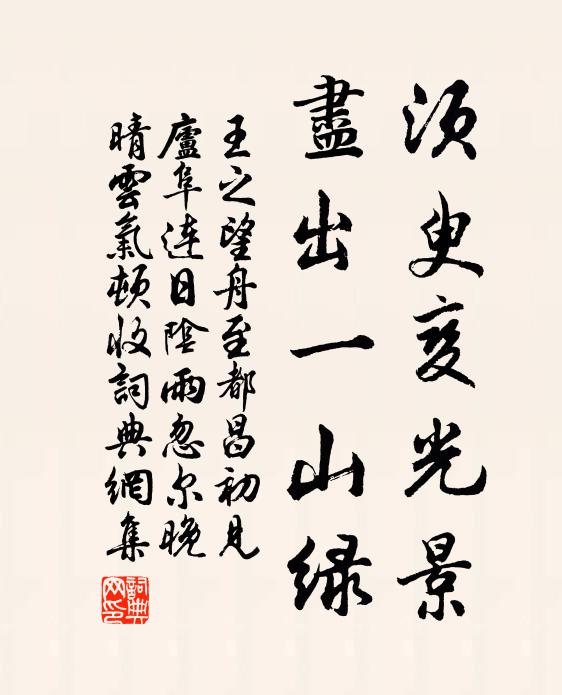 須臾变光景
盡出一山緑
王之望舟至都昌初見
廬阜連日陰雨忽尔晚
晴雲氣頓收詞典網集
詞典网印